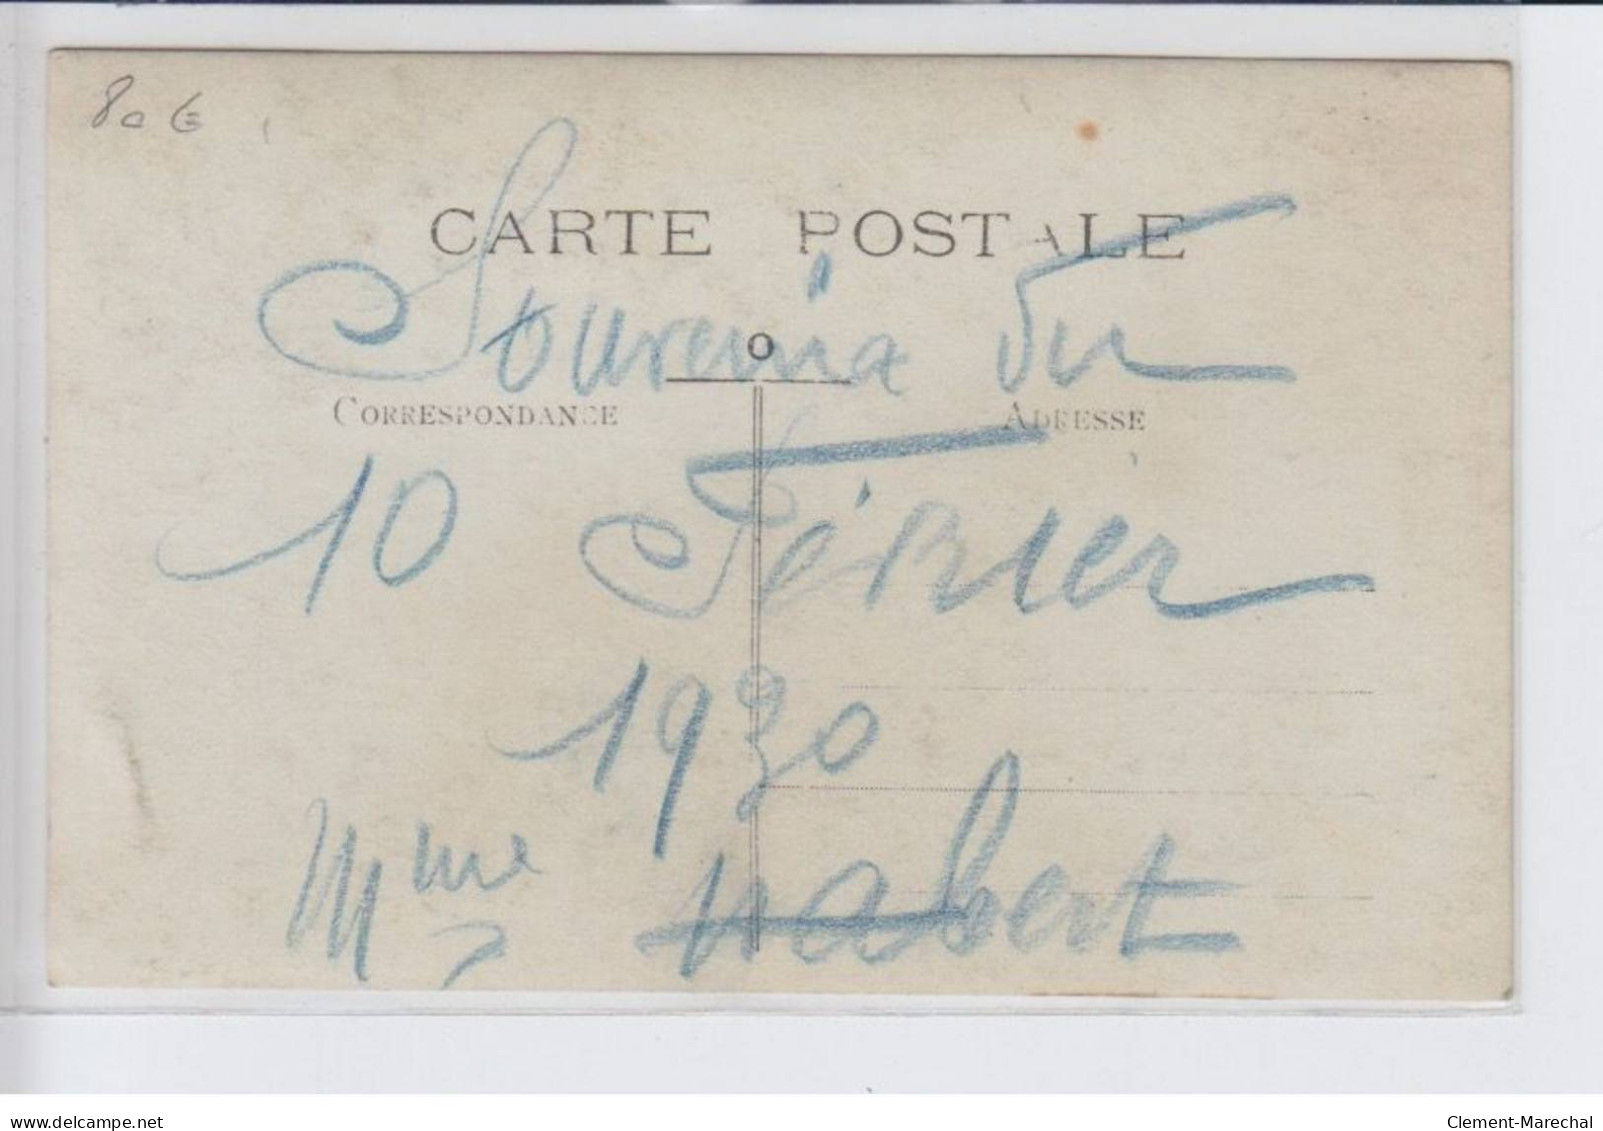 80 €
CARTE POSTALE
Souvenir du
CORRESPONDANCE
ADRESSE
10 Février
1930
Mme Nabert
delcampe.net
Clement-Marechal